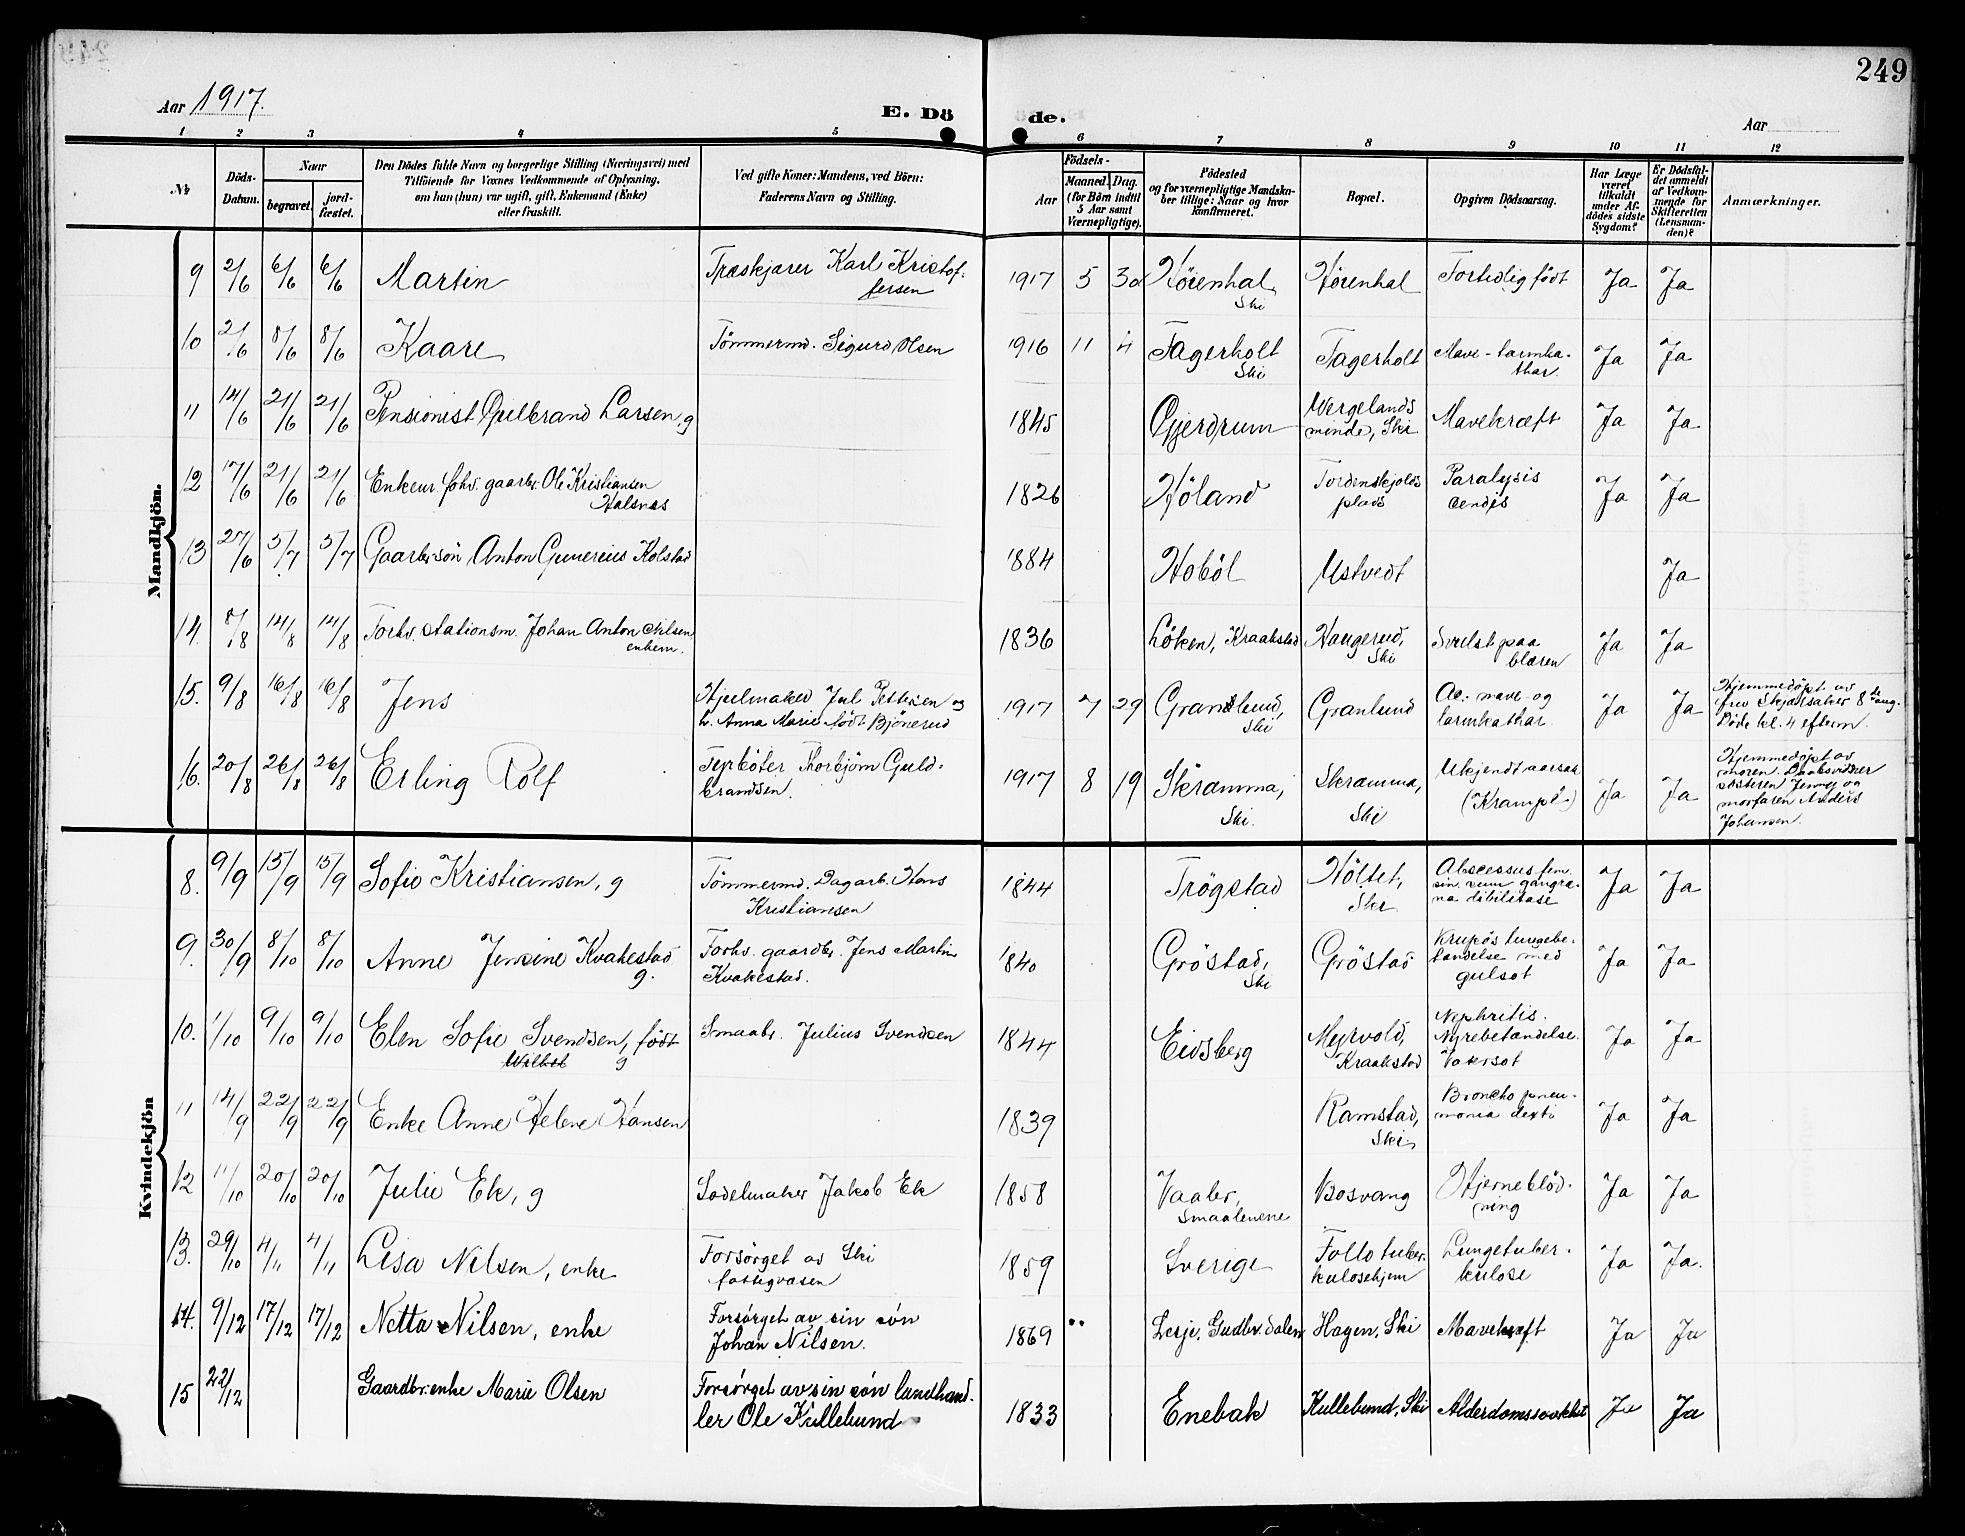 249
Aar 1917.
E. Dö
de.
Aar
1 2 3 4 5 6 7 8 9 10 11 12
№
Döds-Datum.
Naar
begravet.
jord-fæstet.
Den Dödes fulde Navn og borgerlige Stilling (Næringsvei) med
Tilföiende for Voxnes Vedkommende af Oplysning,
om hun (hun) var ugift, gift, Enkemand (Enke)
eller fraskilt.
Ved gifte Koner: Mandens, ved Börn:
Faderens Navn og Stilling.
Födsels-
Aar
Maaned. Dag.
(for Börn indtil
5 Aar samt
Værnepligtige).
Födested
og for værnepligtige Mandska-
ber tillige: Naar og hvor
konfirmeret.
Bopæl.
Opgiven Dödsaarsag.
Har Læge
været
tilkaldt
under Af-
dödes sidste
Sygdom?
Er Dödsfal-
det anmeldt
af Vedkom-
mende for
Skifteretten
(Lensman-
den)?
Anmærkninger.
Mandkjön.
9 2/6 6/6 6/6 Martin Træskjærer Karl Kristof-
fersen 1917 5 30 Hörenhal, Ski Hörenhal Fortidlig födt Ja Ja
10 2/6 8/6 8/6 Kaare Tömmermd. Sigurd Olsen 1916 11 4 Fagerholt Ski Fagerholt Mave-tarmka-
thar. Ja Ja
11 14/6 21/6 21/6 Pensionist Gulbrand Larsen, g 1845 Gjerdrum Wergelands
minde, Ski Mavekræft Ja Ja
12 17/6 21/6 21/6 Enkem. fohv. gaarbr. Ole Kristiansen
Halsnes 1826 Höland Tordenskjolds
plads Paralysis
cendis Ja Ja
13 27/6 5/7 5/7 Gaarbr-sön Anton Gunerius Kolstad 1884 Hoböl Ustvedt Ja
14. 8/8 14/8 14/8 Forhv. stationsm. Johan Anton Nilsen
enkem. 1836 Löken, Kraakstad Haugerud,
Ski Svulst paa
blæren Ja Ja
15. 9/8 16/8 16/8 Jens Hjulmaker Jul Pettersen og
h. Anna Marie födt Bjönerud 1917 7 29 Granlund,
Ski Granlund Ac. mave- og
tarmkathar. Ja Ja Hjemmedöpt av
fru Skjærsaker 8de aug.
Döde kl. 4 efterm.
16. 20/8 26/8 26/8 Erling Rolf Fyrböter Thorbjörn Guld-
brandsen. 1917 8 19 Skramma,
Ski. Skramma,
Ski Ukjendt aarsak
(Krampe) Ja Ja Hjemmedöpt av
moren. Daabsvidner
sösteren Jenny og
morfaren Anders
Johansen.
Kvindekjön
8. 9/9 15/9 15/9 Sofie Kristiansen, g Tömmermd. Dagarb. Hans
Kristiansen 1844 Trögstad Höltet,
Ski Abscessus fem.
sin. cum gangræ-
na debilitase Ja Ja
9. 30/9 8/10 8/10 Anne Jensine Kvakestad
g. Forhv. gaardbr. Jens Martin
Kvakestad. 1840 Gröstad,
Ski Gröstad Krupös lungebe-
tændelse med
gulsot Ja Ja
10. 1/10 9/10 9/10 Elen Sofie Svendsen, födt
g Smaabr. Julius Svendsen 1844 Eidsberg Myrvold,
Kraakstad Nephritis.
Nyrebetændelse.
Vatersot Ja Ja
11 14/9 22/9 22/9 Enke Anne Helene Hansen 1839 Ramstad,
Ski Broncho pneu-
monia dextr. Ja Ja
12 11/10 20/10 20/10 Julie Ek, g Sadelmaker Jakob Ek 1858 Vaaler,
Smaalenene Bosvang Hjerneblöd-
ning Ja Ja
13. 29/10 4/11 4/11 Lisa Nilsen, enke Forsörget av Ski
fattigvæsen 1859 Sverige Follo tuber-
kulosehjem Lungetuber-
kulose Ja Ja.
14. 9/12 17/12 17/12 Netta Nilsen, enke Forsörget av sin sön
Johan Nilsen. 1869 Lesje, Gudbr.dalen Hagen, Ski Mavekræft Ja Ja
15 22/12 Gaardbr.enke Marie Olsen Forsörget av sin sön landhand-
ler Ole Kullebund 1833 Enebak Kullebund, Ski Alderdomssvakhet Ja Ja